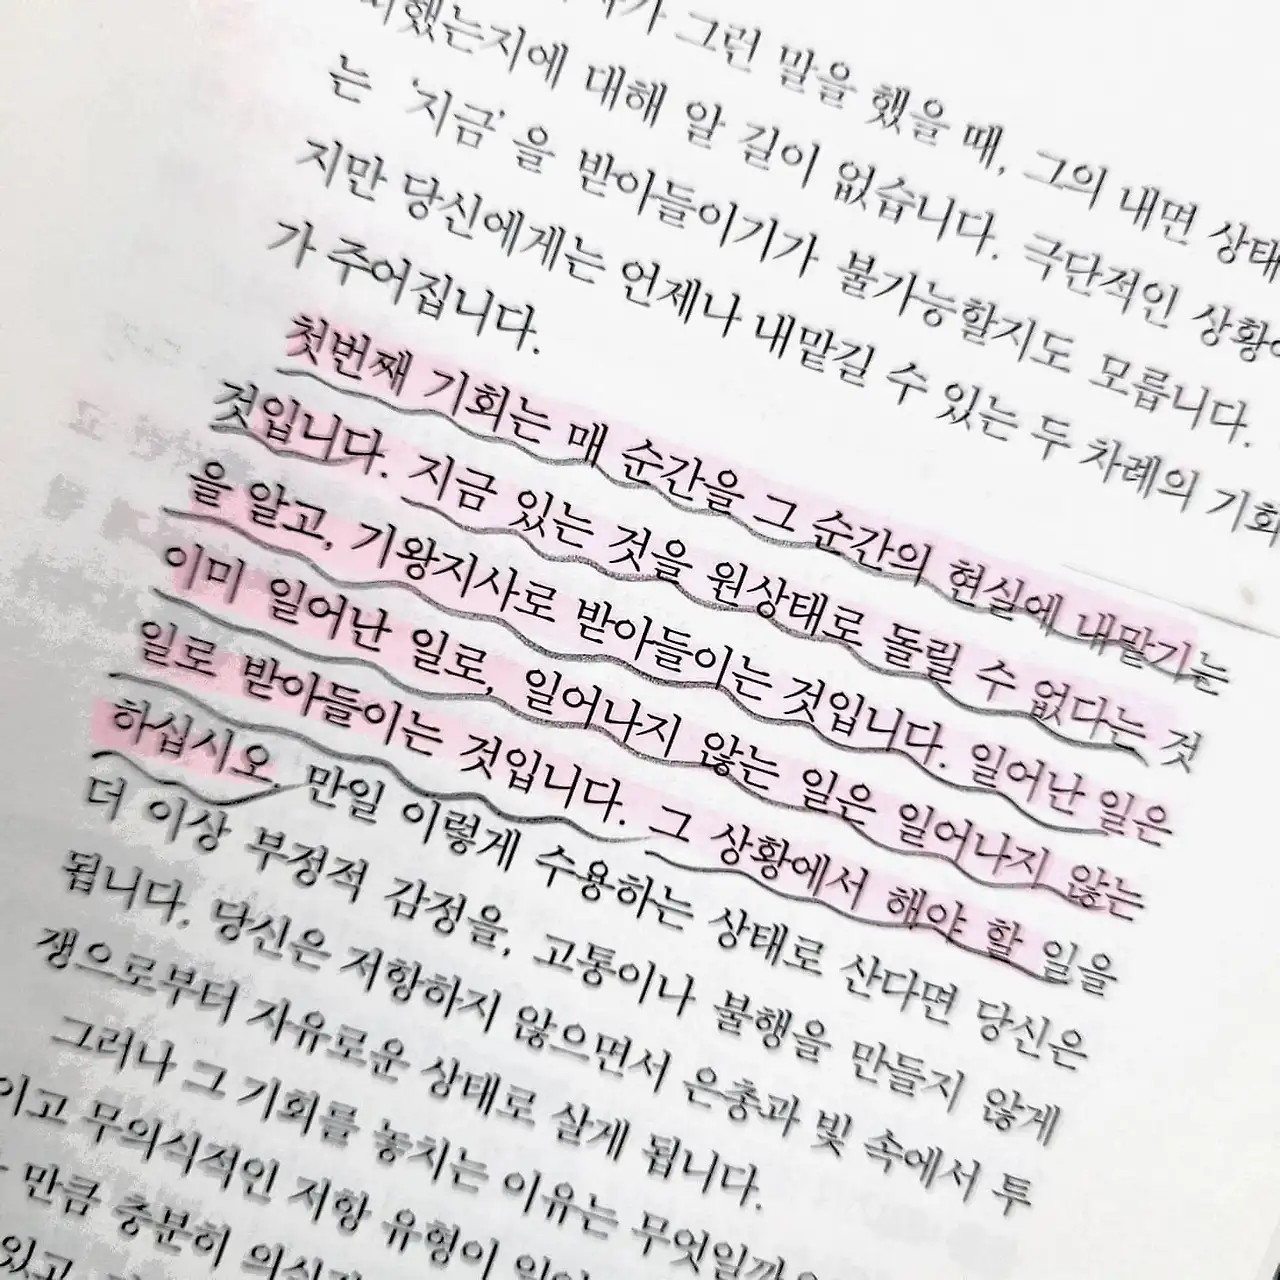 그런 말을 했을 때, 그의 내면 상태
했는지에 대해 알 길이 없습니다. 극단적인 상황
는 '지금'을 받아들이기가 불가능할지도 모릅니다.
지만 당신에게는 언제나 내맡길 수 있는 두 차례의 기회
가 주어집니다.
첫번째 기회는 매 순간을 그 순간의 현실에 내맡기는
것입니다. 지금 있는 것을 원상태로 돌릴 수 없다는 것
을 알고, 기왕지사로 받아들이는 것입니다. 일어난 일은
이미 일어난 일로, 일어나지 않는 일은 일어나지 않는
일로 받아들이는 것입니다. 그 상황에서 해야 할 일을
하십시오. 만일 이렇게 수용하는 상태로 산다면 당신은
더 이상 부정적 감정을, 고통이나 불행을 만들지 않게
됩니다. 당신은 저항하지 않으면서 은총과 빛 속에서 투
쟁으로부터 자유로운 상태로 살게 됩니다.
그러나 그 기회를 놓치는 이유는 무엇일까
이고 무의식적인 저항 유형이
만큼 충분히
있고